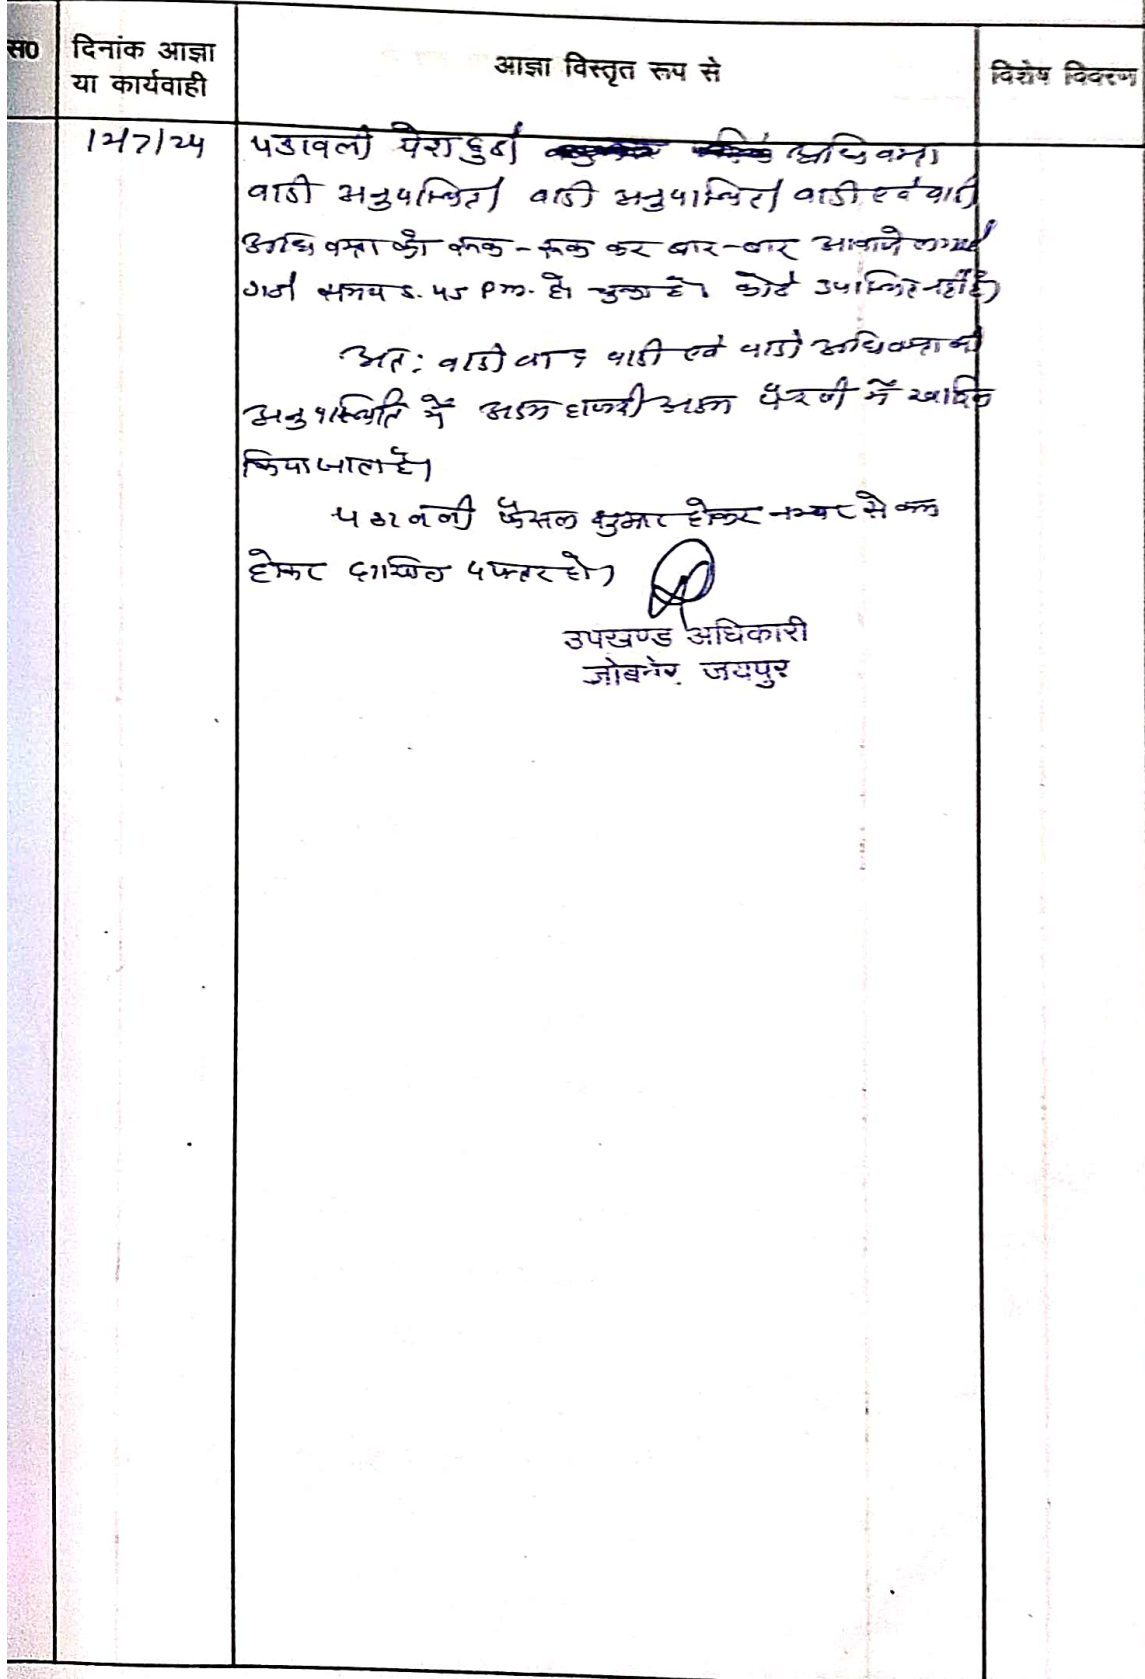 स0
दिनांक आज्ञा
या कार्यवाही
आज्ञा विस्तृत रूप से
विशेष विवरण
पत्रावली पेश हुई। अधिवक्ता
वादी अनुपस्थित। वादी अनुपस्थित। वादी एवं वादी
अधिवक्ता को रूक-रूक कर बार-बार आवाजे लगवाई
गई। समय 5.45 Pm. हो चुका है। कोई उपस्थित नहीं है।
अतः वादी वाद वादी एवं वादी अधिवक्ता की
अनुपस्थिति में अदम हाजरी अदम पैरवी में खारिज
किया जाता है।
पत्रावली फैसल शुमार होकर नम्बर से कम
होकर दाखिल दफ्तर हो।
उपखण्ड अधिकारी
जोबनेर, जयपुर